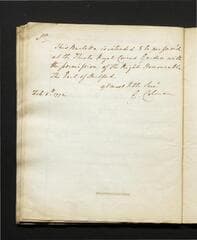 Sr.
This Burletta is intended to be performed
at the Theatre Royal Covent Garden with
the permission of the Right Honourable
The Earl of Hertford.
G. Colman
Feb. 1772